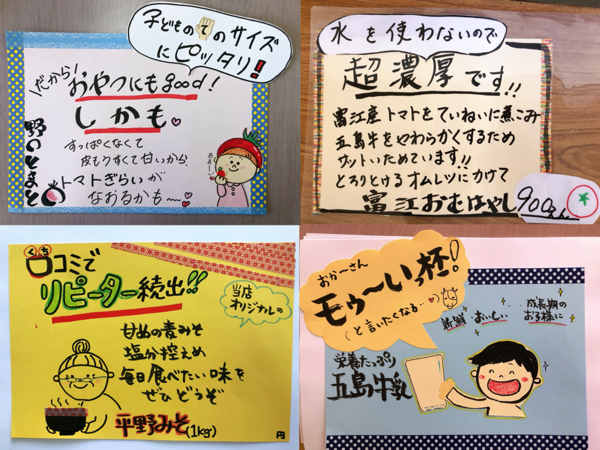 子どもの手のサイズ
にピッタリ!
だから!
おやつにもgood!
しかも。
すっぱくなくて
皮もうすくて甘いから
トマトぎらいが
なおるかも〜〜
野のとまと
水を使わないので
超濃厚です!!
富江産トマトをていねいに煮こみ
五島牛をやわらかくするため
サットいためています!!
とろりとけるオムレツにかけて
富江おむはやし
900えん
口コミで
くち
リピーター続出!!
当店
オリジナルの
甘めの麦みそ
塩分控えめ
毎日食べたい味を
ぜひどうぞ
平野みそ(1kg)
円
おかーさん
モゥ〜いっ杯!
(と言いたくなる…)
新鮮
おいしい
...成長期の
お子様に
栄養たっぷり
五島牛乳